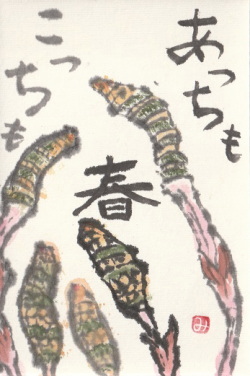 あっちも
こっちも
春
み